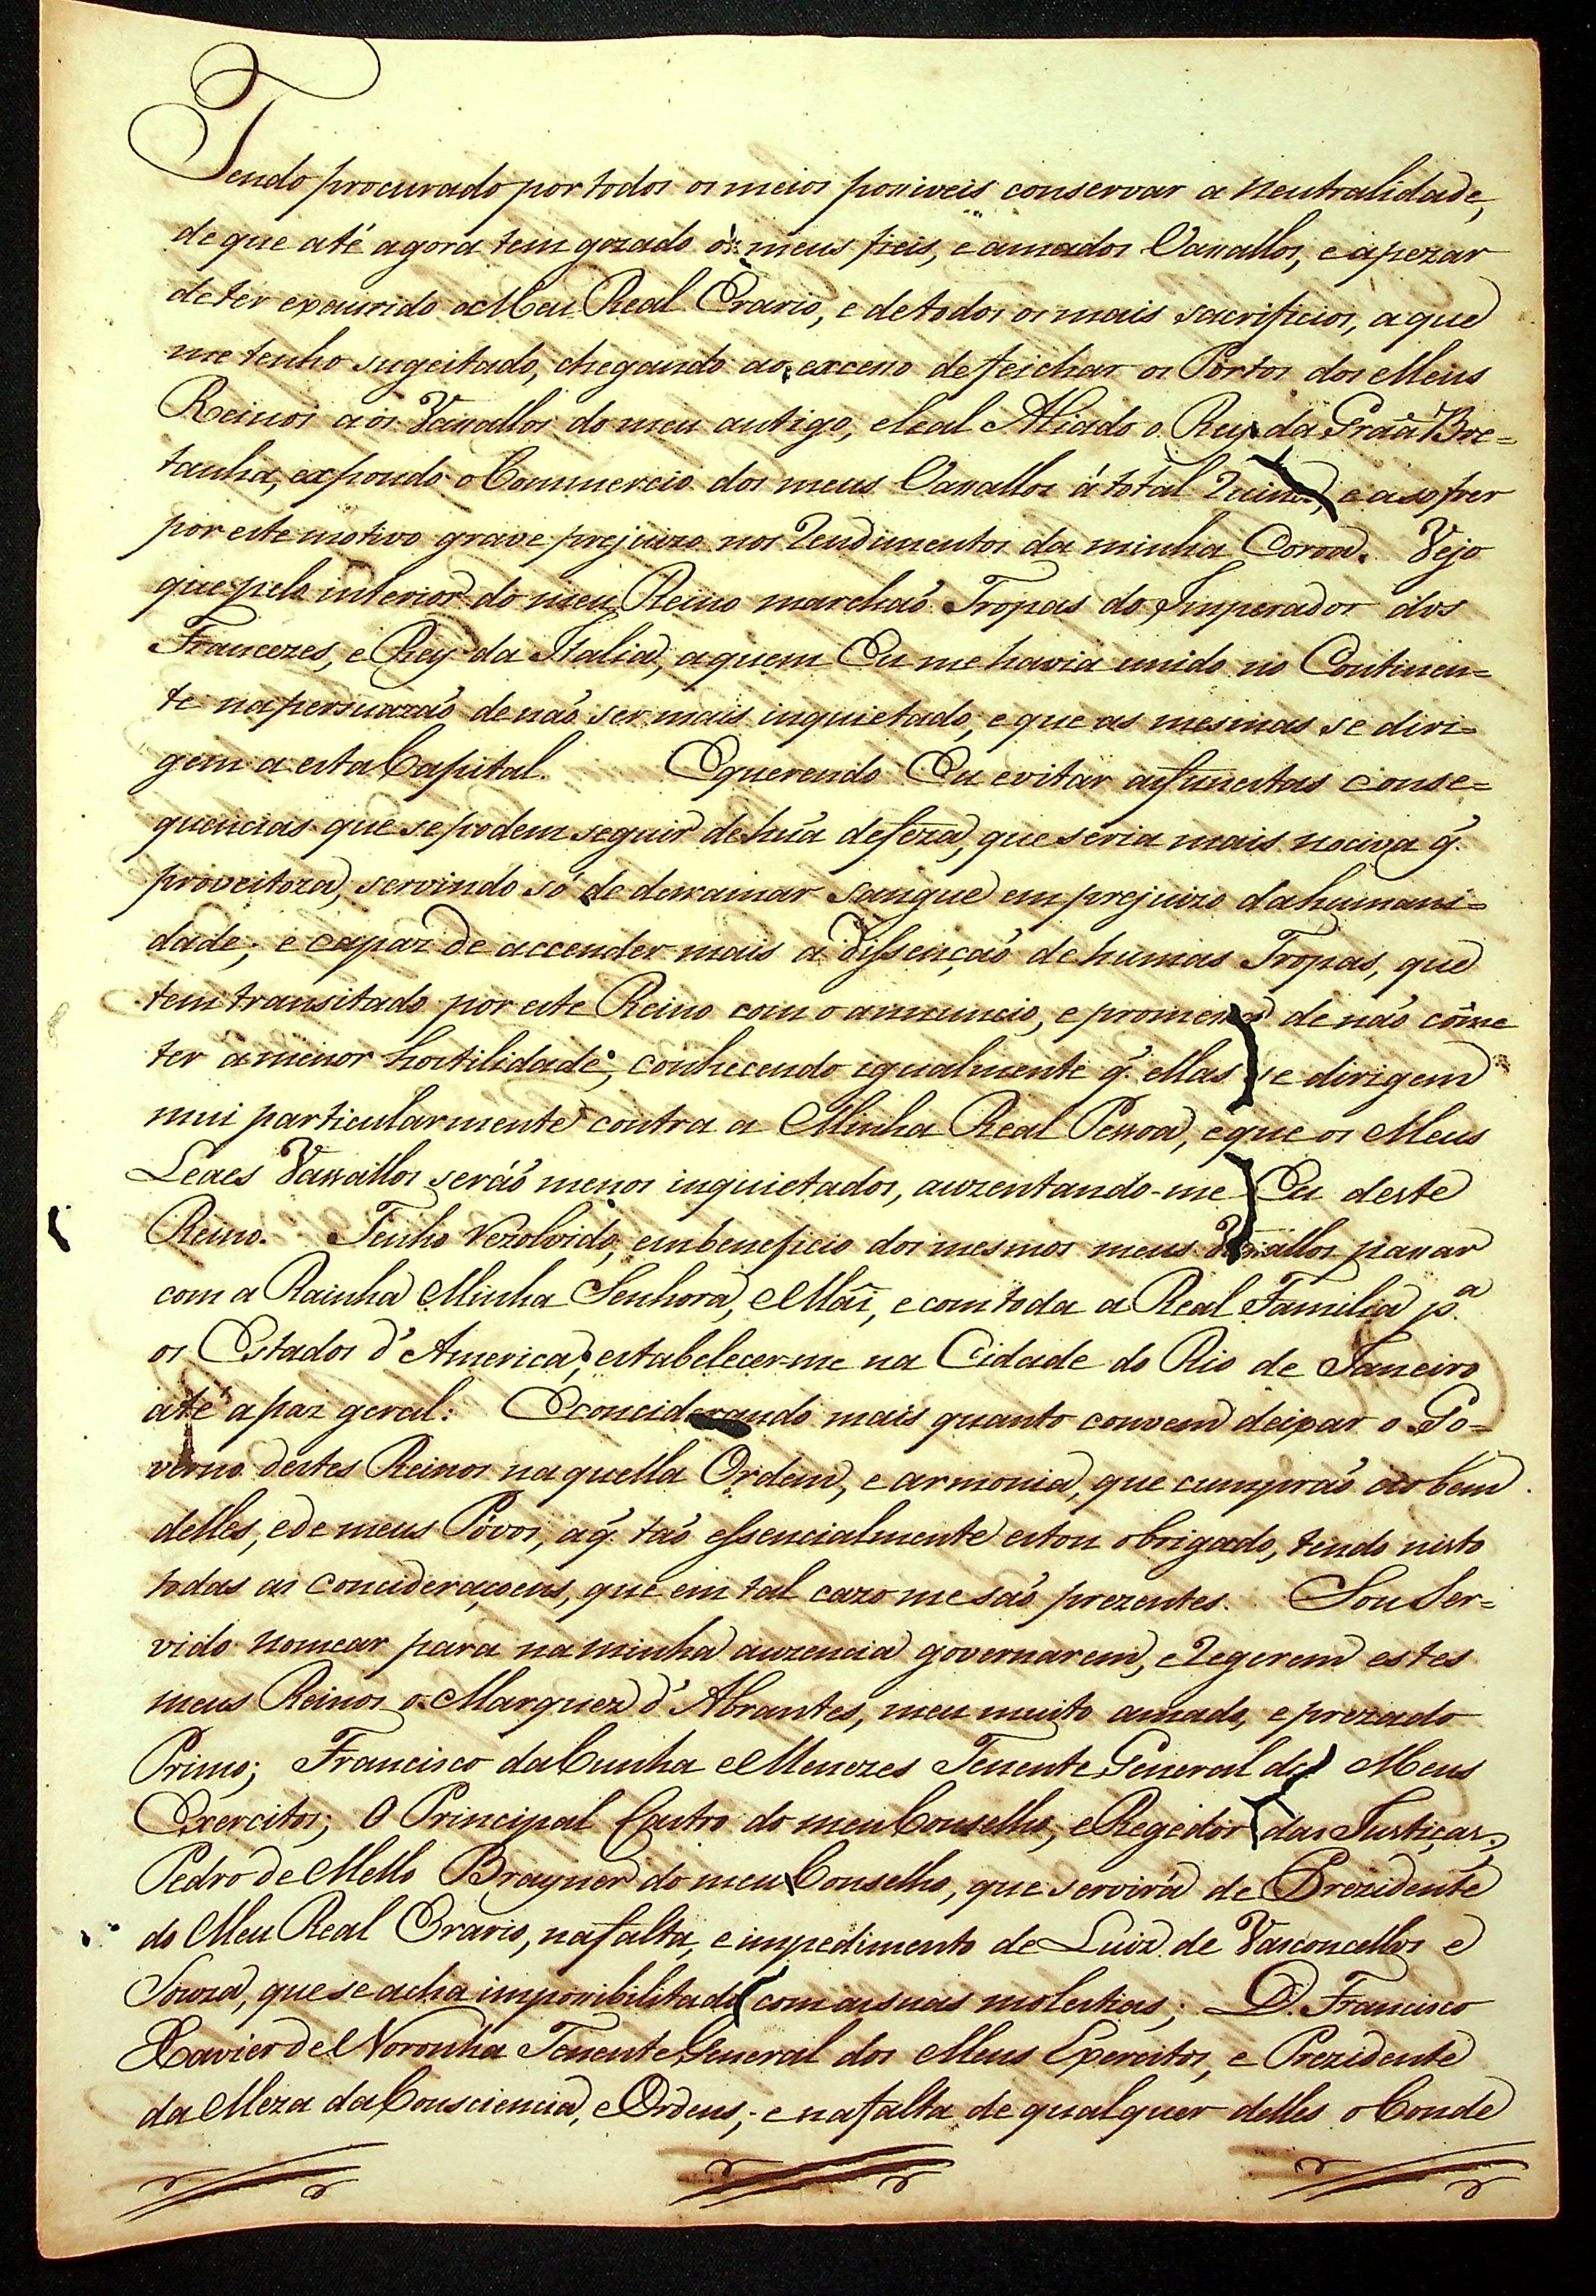 Tendo procurado por todos os meios possiveis conservar a Neutralidade,
de que até agora tem gozado os meus fieis, e amados Vassallos, e apezar
de ter exaurido o Meu Real Erario, e de todos os mais sacrificios, a que
me tenho sugeitado, chegando ao excesso de feichar os Portos dos Meus
Reinos aos Vassallos do meu antigo, e leal Aliado o Rey da Graã Bre=
tanha, expondo o Commercio dos meus Vassallos á total Ruina, e a sofrer
por este motivo grave prejuizo nos Rendimentos da minha Coroa. Vejo
que pelo interior do meu Reino marchaõ Tropas do Imperador dos
Francezes, e Rey da Italia, a quem Eu me havia unido no Continen=
te na persuazaõ de naõ ser mais inquietado, e que as mesmas se diri=
gem a esta Capital. E querendo Eu evitar as funestas conse=
quencias que se podem seguir de huã defeza, que seria mais nociva q̃.
proveitoza, servindo só de derramar sangue em prejuizo da humani=
dade, e capaz de accender mais a dissençaõ de humas Tropas, que
tem transitado por este Reino com o annuncio, e promessa de naõ cõme
ter a menor hostilidade; conhecendo igualmente q̃. ellas se dirigem
mui particularmente contra a Minha Real Pessoa, e que os Meus
Leaes Vassallos seráõ menos inquietados, auzentando-me Eu deste
Reino. Tenho Rezolvido, em beneficio dos mesmos meus Vassallos passar
com a Rainha Minha Senhora, e Mãi, e com toda a Real Familia p.ª
os Estados d'America, estabelecer-me na Cidade do Rio de Janeiro
até a paz geral. E conciderando mais quanto convem deixar o Go=
verno destes Reinos naquella Ordem, e armonia, que cumpraõ ao bem
delles, e de meus Póvos, a q̃. taõ essencialmente estou obrigado, tendo nisto
todas as concideraçoens, que em tal cazo me saõ prezentes. Sou Ser=
vido nomear para na minha auzencia governarem, e Regerem estes
meus Reinos o Marquez d'Abrantes, meu muito amado, e prezado
Primo; Francisco da Cunha e Menezes Tenente General dos Meus
Exercitos; O Principal Castro do meu Conselho, e Regedor das Justiças;
Pedro de Mello Brayner do meu Conselho, que servirá de Prezidente
do Meu Real Erario, na falta, e impedimento de Luiz de Vasconcellos e
Souza, que se acha impossibilitado com as suas molestias; D. Francisco
Xavier de Noronha Tenente General dos Meus Exercitos, e Prezidente
da Meza da Consciencia, e Ordens; e na falta de qualquer delles o Conde